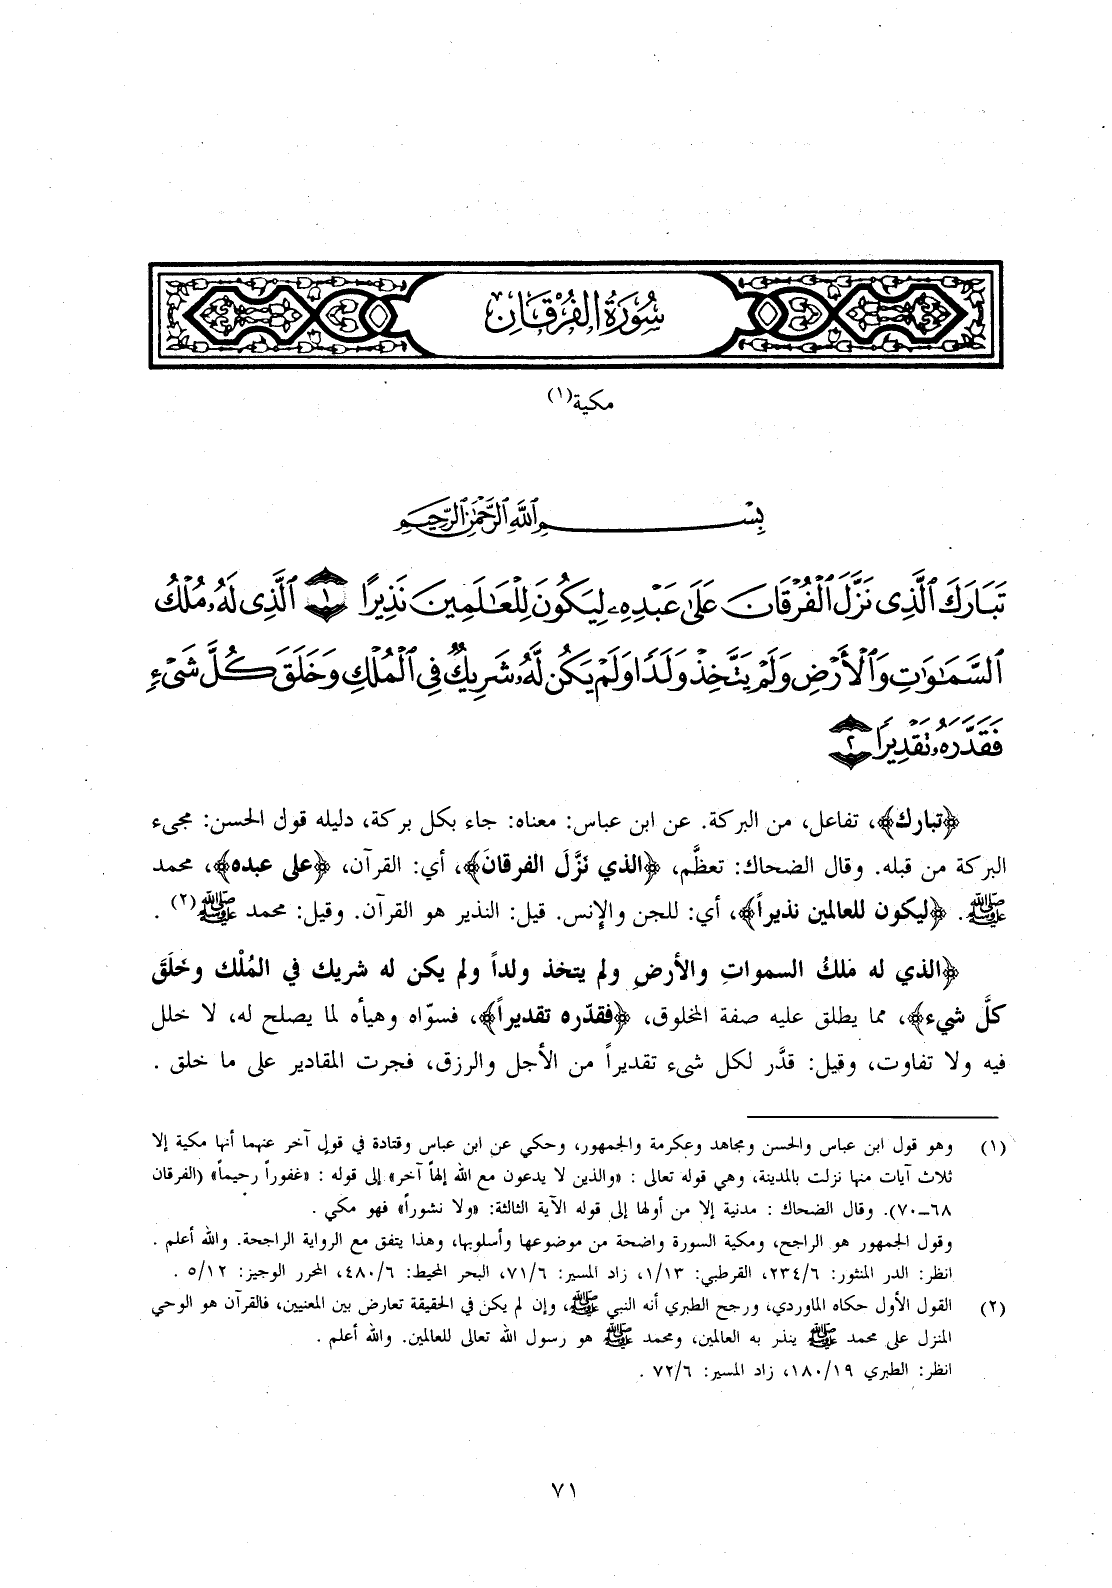 سُورَةُ الفُرْقَانِ
مكية(١)
بِسْمِ ٱللَّهِ ٱلرَّحْمَٰنِ ٱلرَّحِيمِ
تَبَارَكَ ٱلَّذِى نَزَّلَ ٱلْفُرْقَانَ عَلَىٰ عَبْدِهِۦ لِيَكُونَ لِلْعَٰلَمِينَ نَذِيرًا ١ ٱلَّذِى لَهُۥ مُلْكُ
ٱلسَّمَٰوَٰتِ وَٱلْأَرْضِ وَلَمْ يَتَّخِذْ وَلَدًا وَلَمْ يَكُن لَّهُۥ شَرِيكٌ فِى ٱلْمُلْكِ وَخَلَقَ كُلَّ شَىْءٍ
فَقَدَّرَهُۥ تَقْدِيرًا ٢
﴿تبارك﴾، تفاعل، من البركة. عن ابن عباس: معناه: جاء بكل بركة، دليله قول الحسن: مجىء
البركة من قبله. وقال الضحاك: تعظَّم، ﴿الذي نَزَّلَ الفرقانَ﴾، أي: القرآن، ﴿على عبده﴾، محمد
ﷺ. ﴿ليكون للعالمين نذيراً﴾، أي: للجن والإنس. قيل: النذير هو القرآن. وقيل: محمد ﷺ(٢) .
﴿الذي له مُلكُ السمواتِ والأرضِ ولم يتخذ ولداً ولم يكن له شريك في المُلْك وخَلَقَ
كلَّ شيء﴾، مما يطلق عليه صفة المخلوق، ﴿فقدّره تقديراً﴾، فسوّاه وهيأه لما يصلح له، لا خلل
فيه ولا تفاوت، وقيل: قدَّر لكل شىء تقديراً من الأجل والرزق، فجرت المقادير على ما خلق .
(١) وهو قول ابن عباس والحسن ومجاهد وعكرمة والجمهور، وحكي عن ابن عباس وقتادة في قول آخر عنهما أنها مكية إلا
ثلاث آيات منها نزلت بالمدينة، وهي قوله تعالى : «والذين لا يدعون مع الله إلهاً آخر» إلى قوله : «غفوراً رحيماً» (الفرقان
٦٨ــ٧٠). وقال الضحاك : مدنية إلا من أولها إلى قوله الآية الثالثة: «ولا نشوراً» فهو مكي .
وقول الجمهور هو الراجح، ومكية السورة واضحة من موضوعها وأسلوبها، وهذا يتفق مع الرواية الراجحة. والله أعلم .
انظر: الدر المنثور: ٢٣٤/٦، القرطبي: ١/١٣، زاد المسير: ٧١/٦، البحر المحيط: ٤٨٠/٦، المحرر الوجيز: ٥/١٢ .
(٢) القول الأول حكاه الماوردي، ورجح الطبري أنه النبي ﷺ، وإن لم يكن في الحقيقة تعارض بين المعنيين، فالقرآن هو الوحي
المنزل على محمد ﷺ ينذر به العالمين، ومحمد ﷺ هو رسول الله تعالى للعالمين. والله أعلم .
انظر: الطبري ١٨٠/١٩، زاد المسير: ٧٢/٦ .
٧١